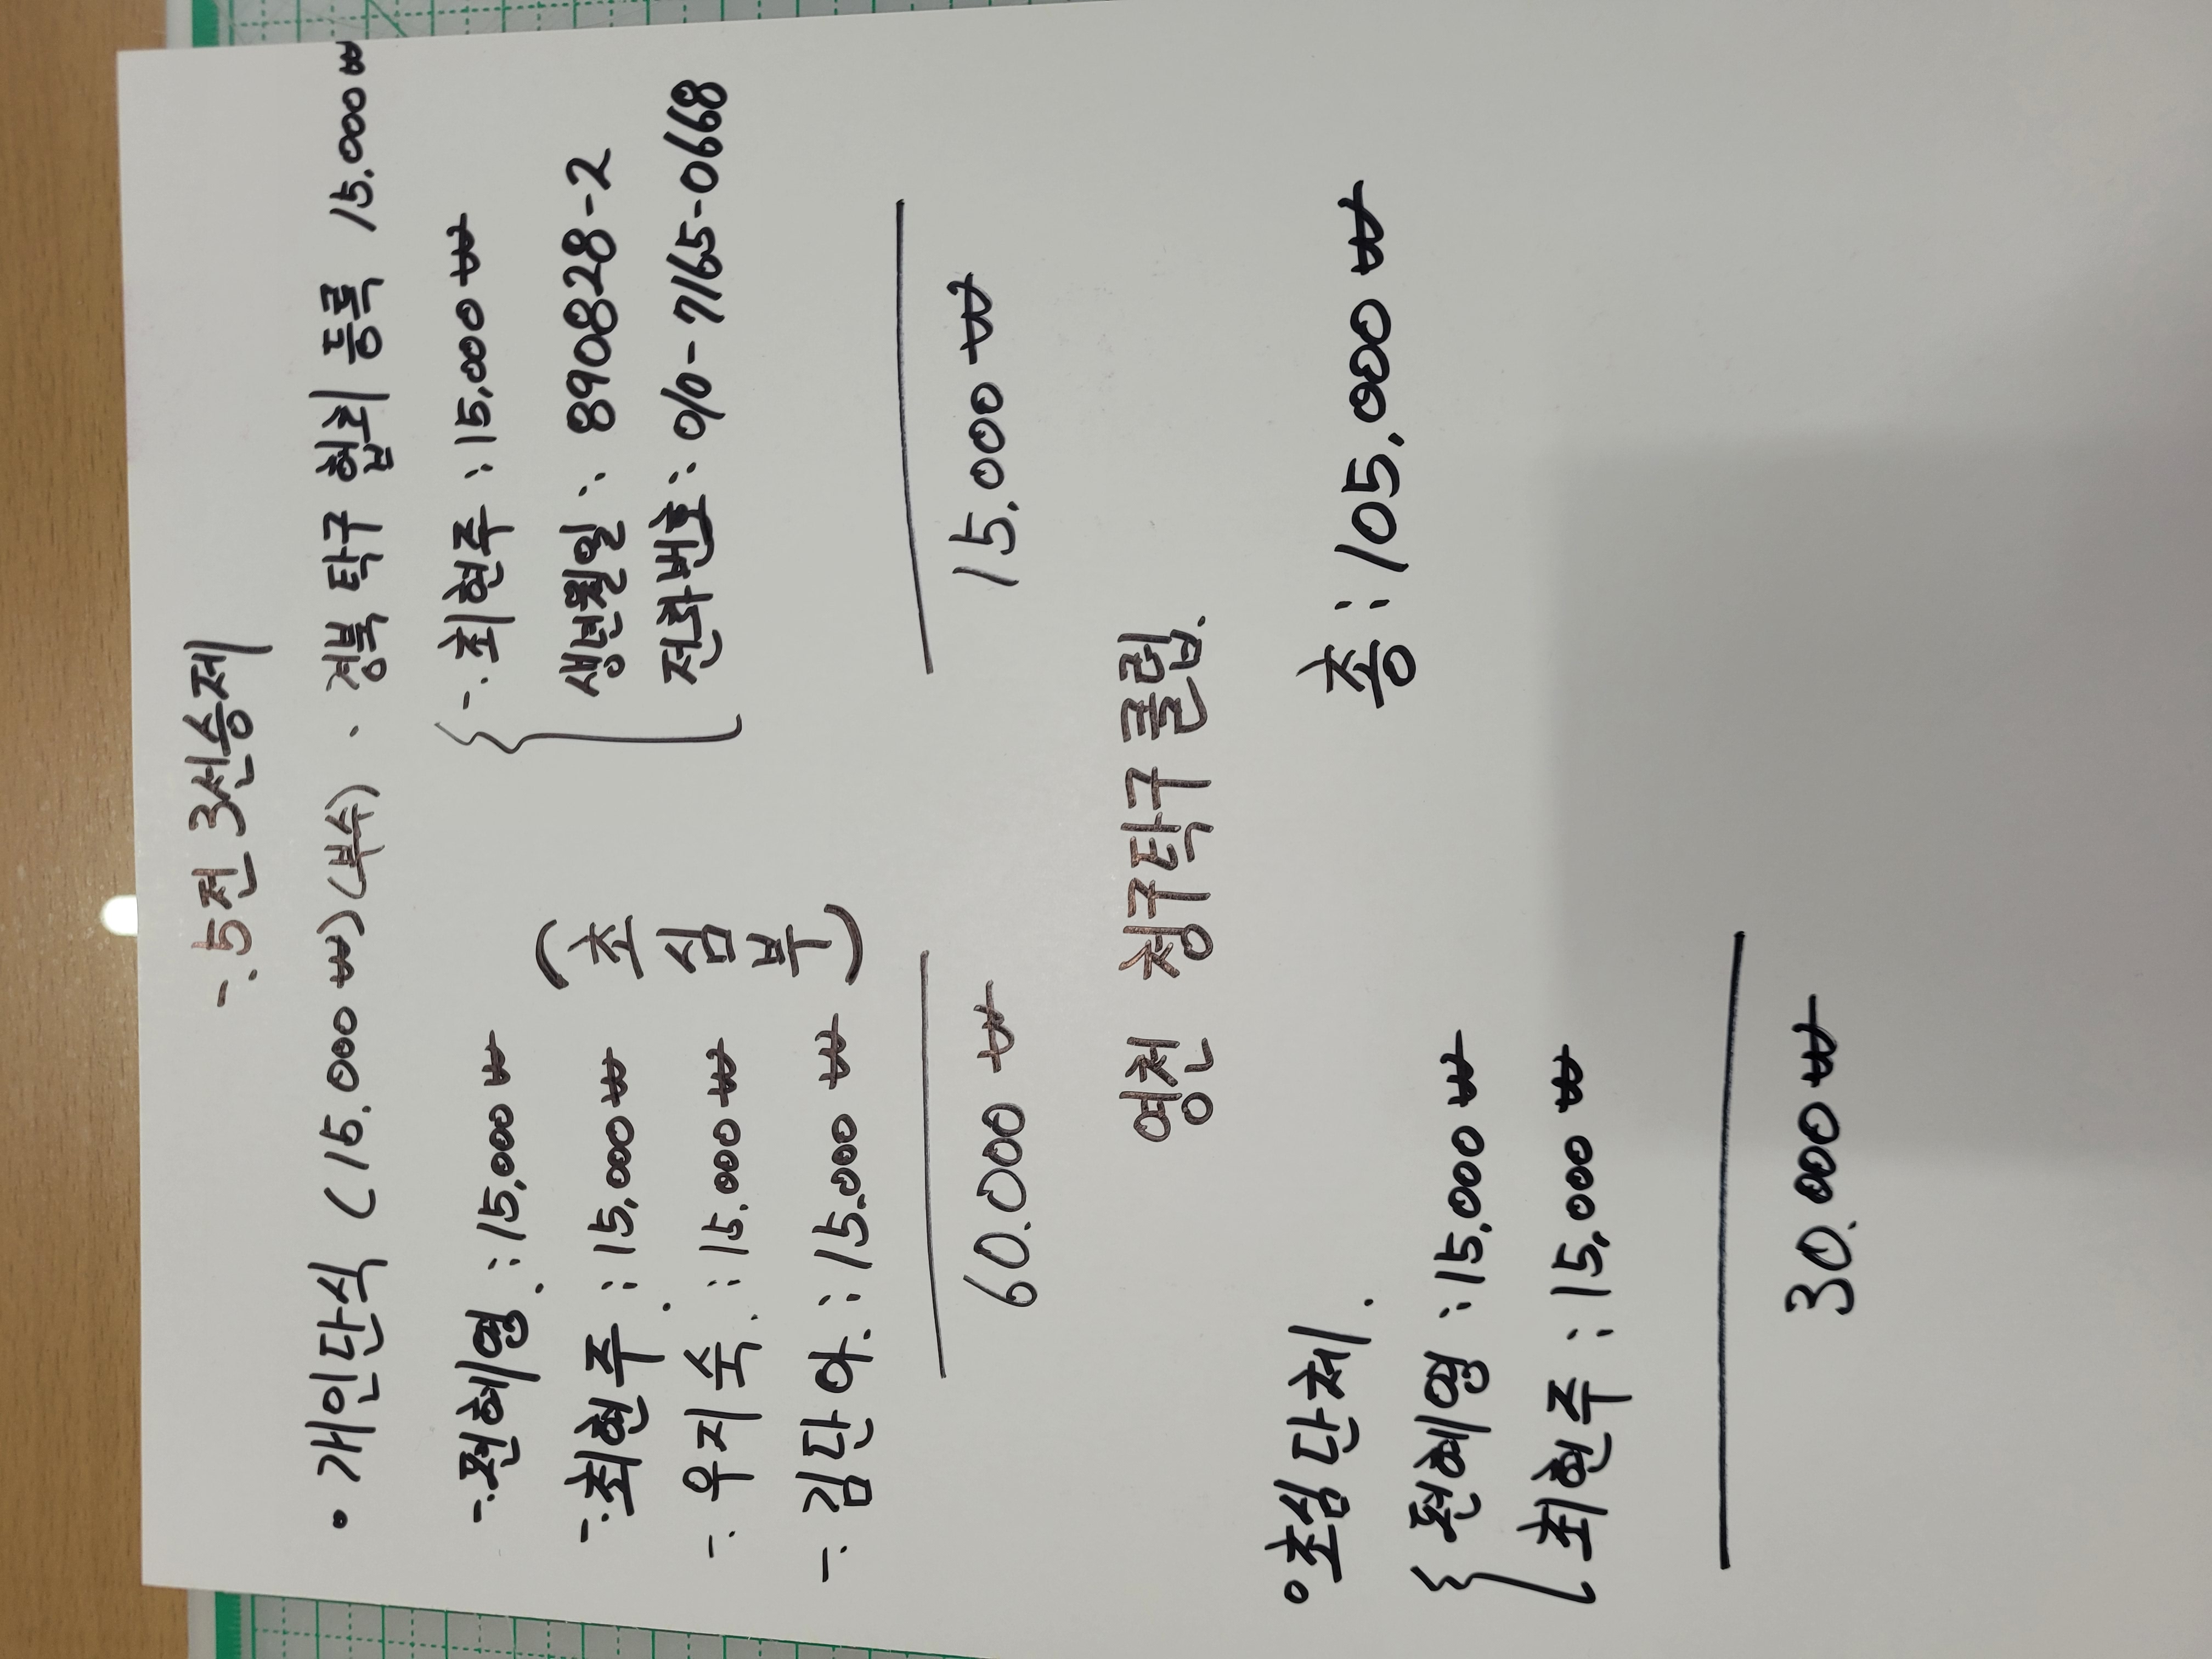 -. 5전 3선승제
• 개인단식 (15.000₩)(부수) · 경북 탁구 협회 등록 15.000₩
-. 전혜영. : 15,000₩
-. 최현주. : 15,000₩
-. 우지숙. : 15.000₩
-. 김단아. : 15.000₩
(초심부)
60.000₩
-. 최현주 : 15,000₩
생년월일 : 890828-2
전화번호 : 010-7165-0668
15.000₩
영천 청구탁구 클럽.
○ 초심 단체.
전혜영 : 15,000₩
최현주 : 15,000₩
30.000₩
총 : 105.000₩